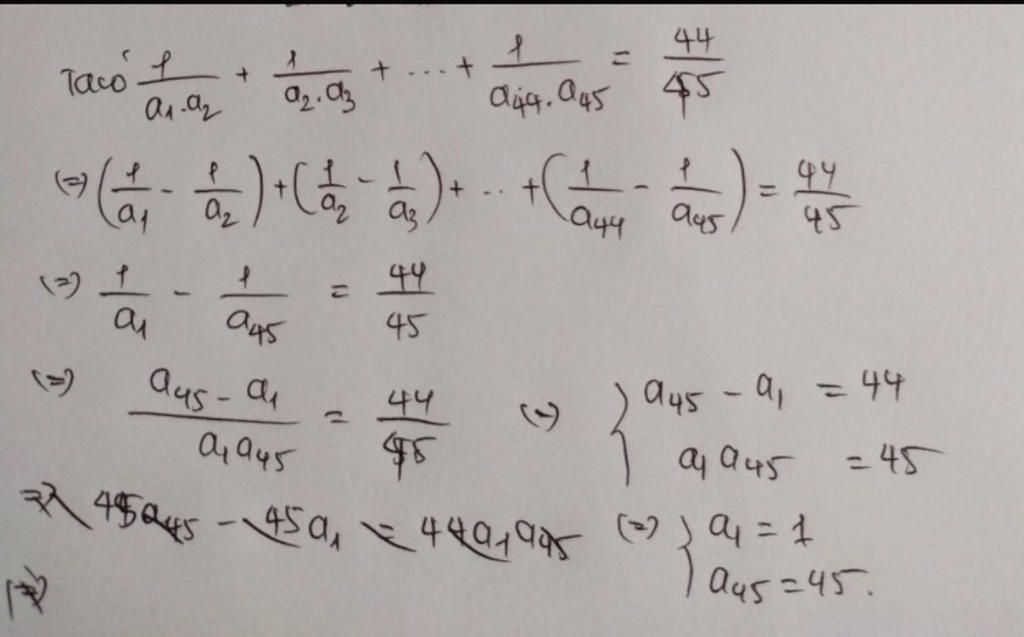 Ta có 1/(a₁.a₂) + 1/(a₂.a₃) + ... + 1/(a₄₄.a₄₅) = 44/45
(=) (1/a₁ - 1/a₂) + (1/a₂ - 1/a₃) + .. + (1/a₄₄ - 1/a₄₅) = 44/45
(=) 1/a₁ - 1/a₄₅ = 44/45
(=) (a₄₅ - a₁)/(a₁a₄₅) = 44/45 (=) { a₄₅ - a₁ = 44
a₁a₄₅ = 45
=> 45a₄₅ - 45a₁ = 44a₁a₄₅ (=) { a₁ = 1
a₄₅ = 45.